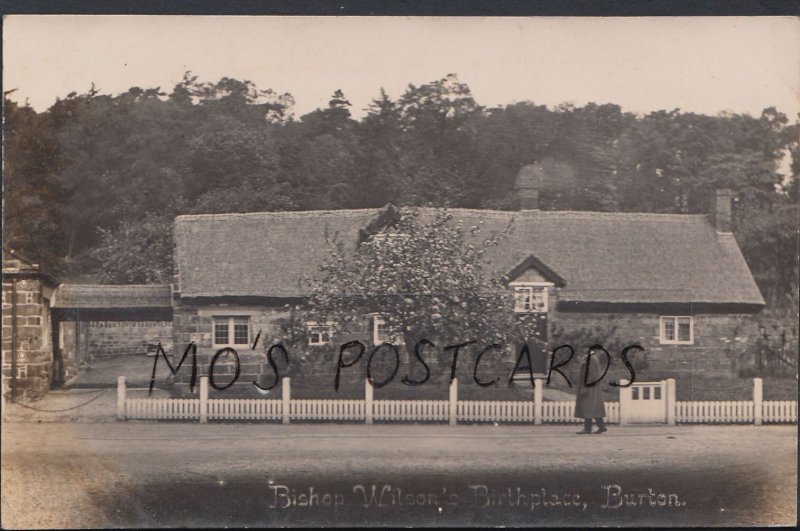 MO'S POSTCARDS
Bishop Wilson's Birthplace, Burton.